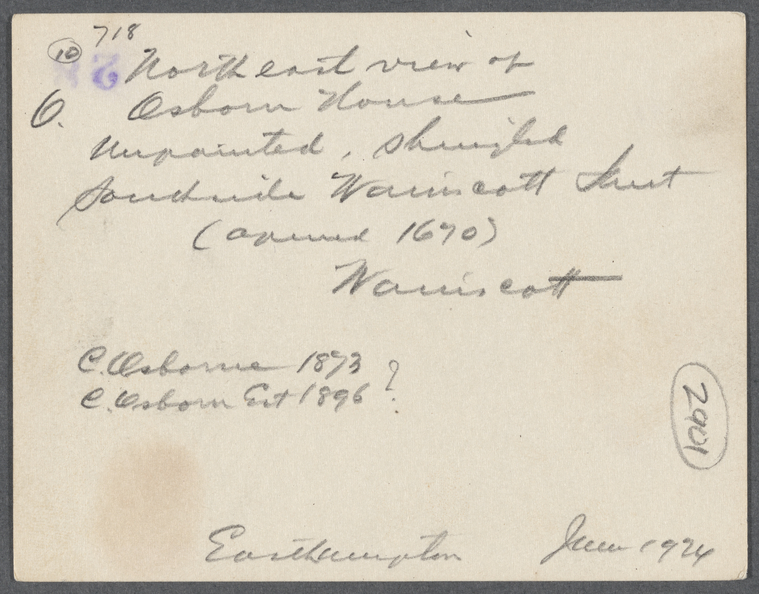 10 718
28
North east view of
6. Osborn House
Unpainted, shingled
Southside Wainscott Street
(opened 1670)
Wainscott
C. Osborne 1873 ?
C. Osborn Est 1896
2901
Easthampton June 1924